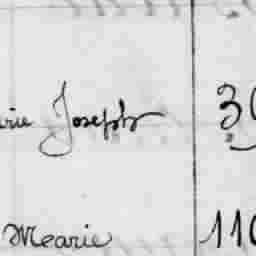 rie Joseph 30
Mearie 110